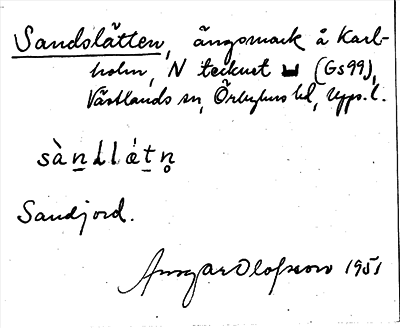 Sandslätten, ängsmark å Karl-
holm, N tecknet (Gs99),
Västlands sn, Örbyhus hd, Upps. l.
sàndlǽtn̥
Sandjord.
Ansgar Olofsson 1951